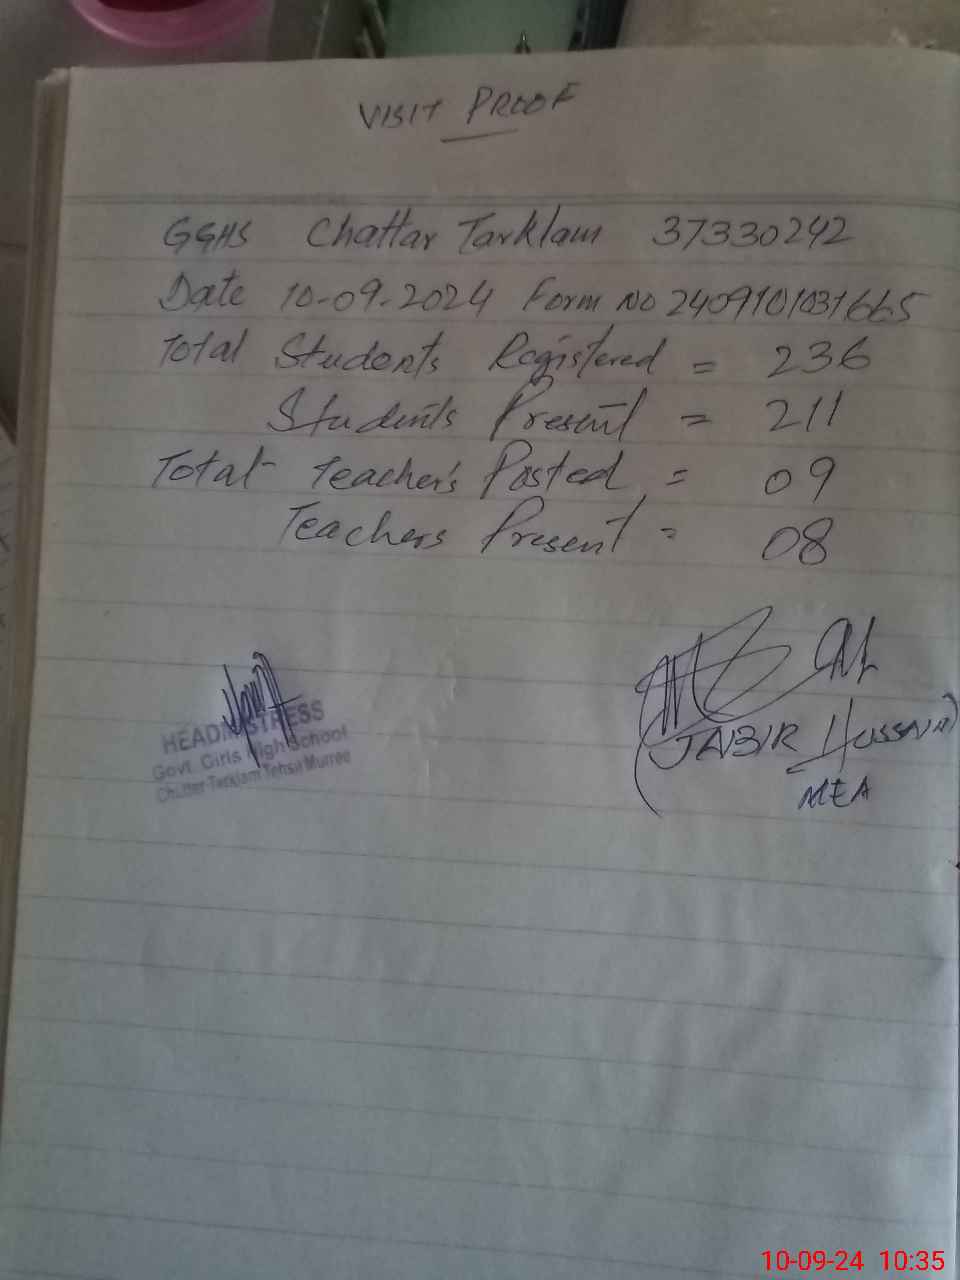 VISIT PROOF
GGHS Chattar Tarklam 37330242
Date 10-09-2024 Form No 2409101031665
Total Students Registered = 236
Students Present = 211
Total Teachers Posted = 09
Teachers Present = 08
HEADMISTRESS
Govt. Girls High School
Chatter Tarklam Tehsil Murree
(JABIR HUSSAIN)
MEA
10-09-24 10:35